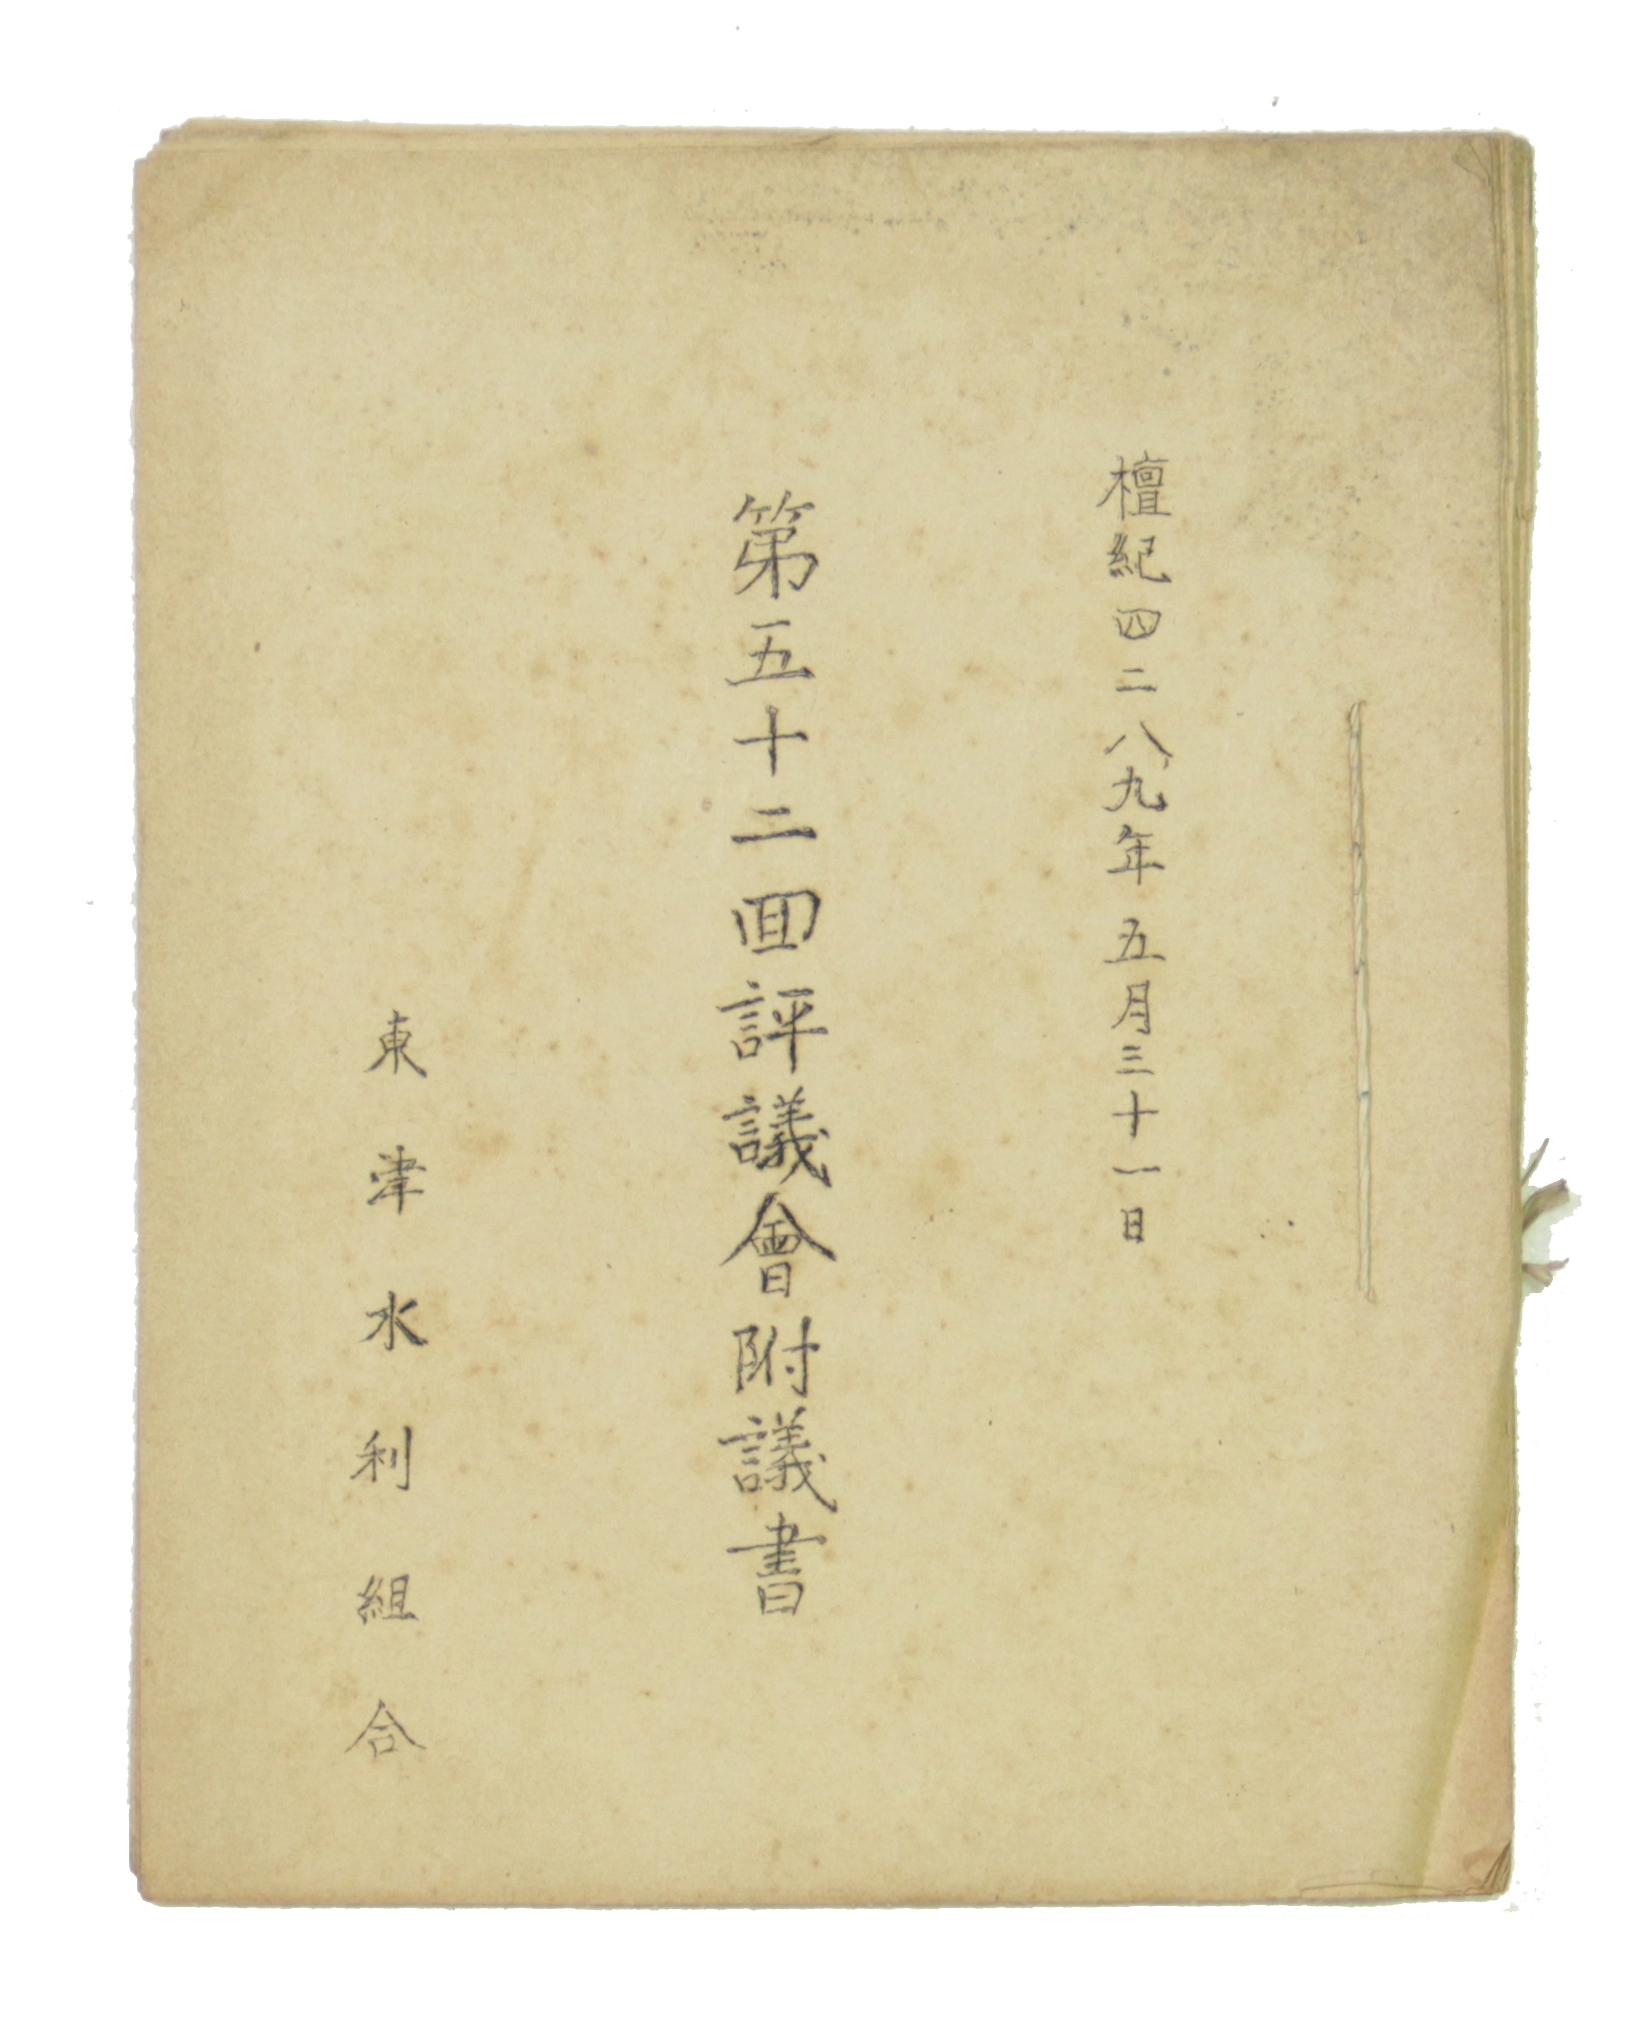 檀紀四二八九年五月三十一日
第五十二回評議會附議書
東津水利組合